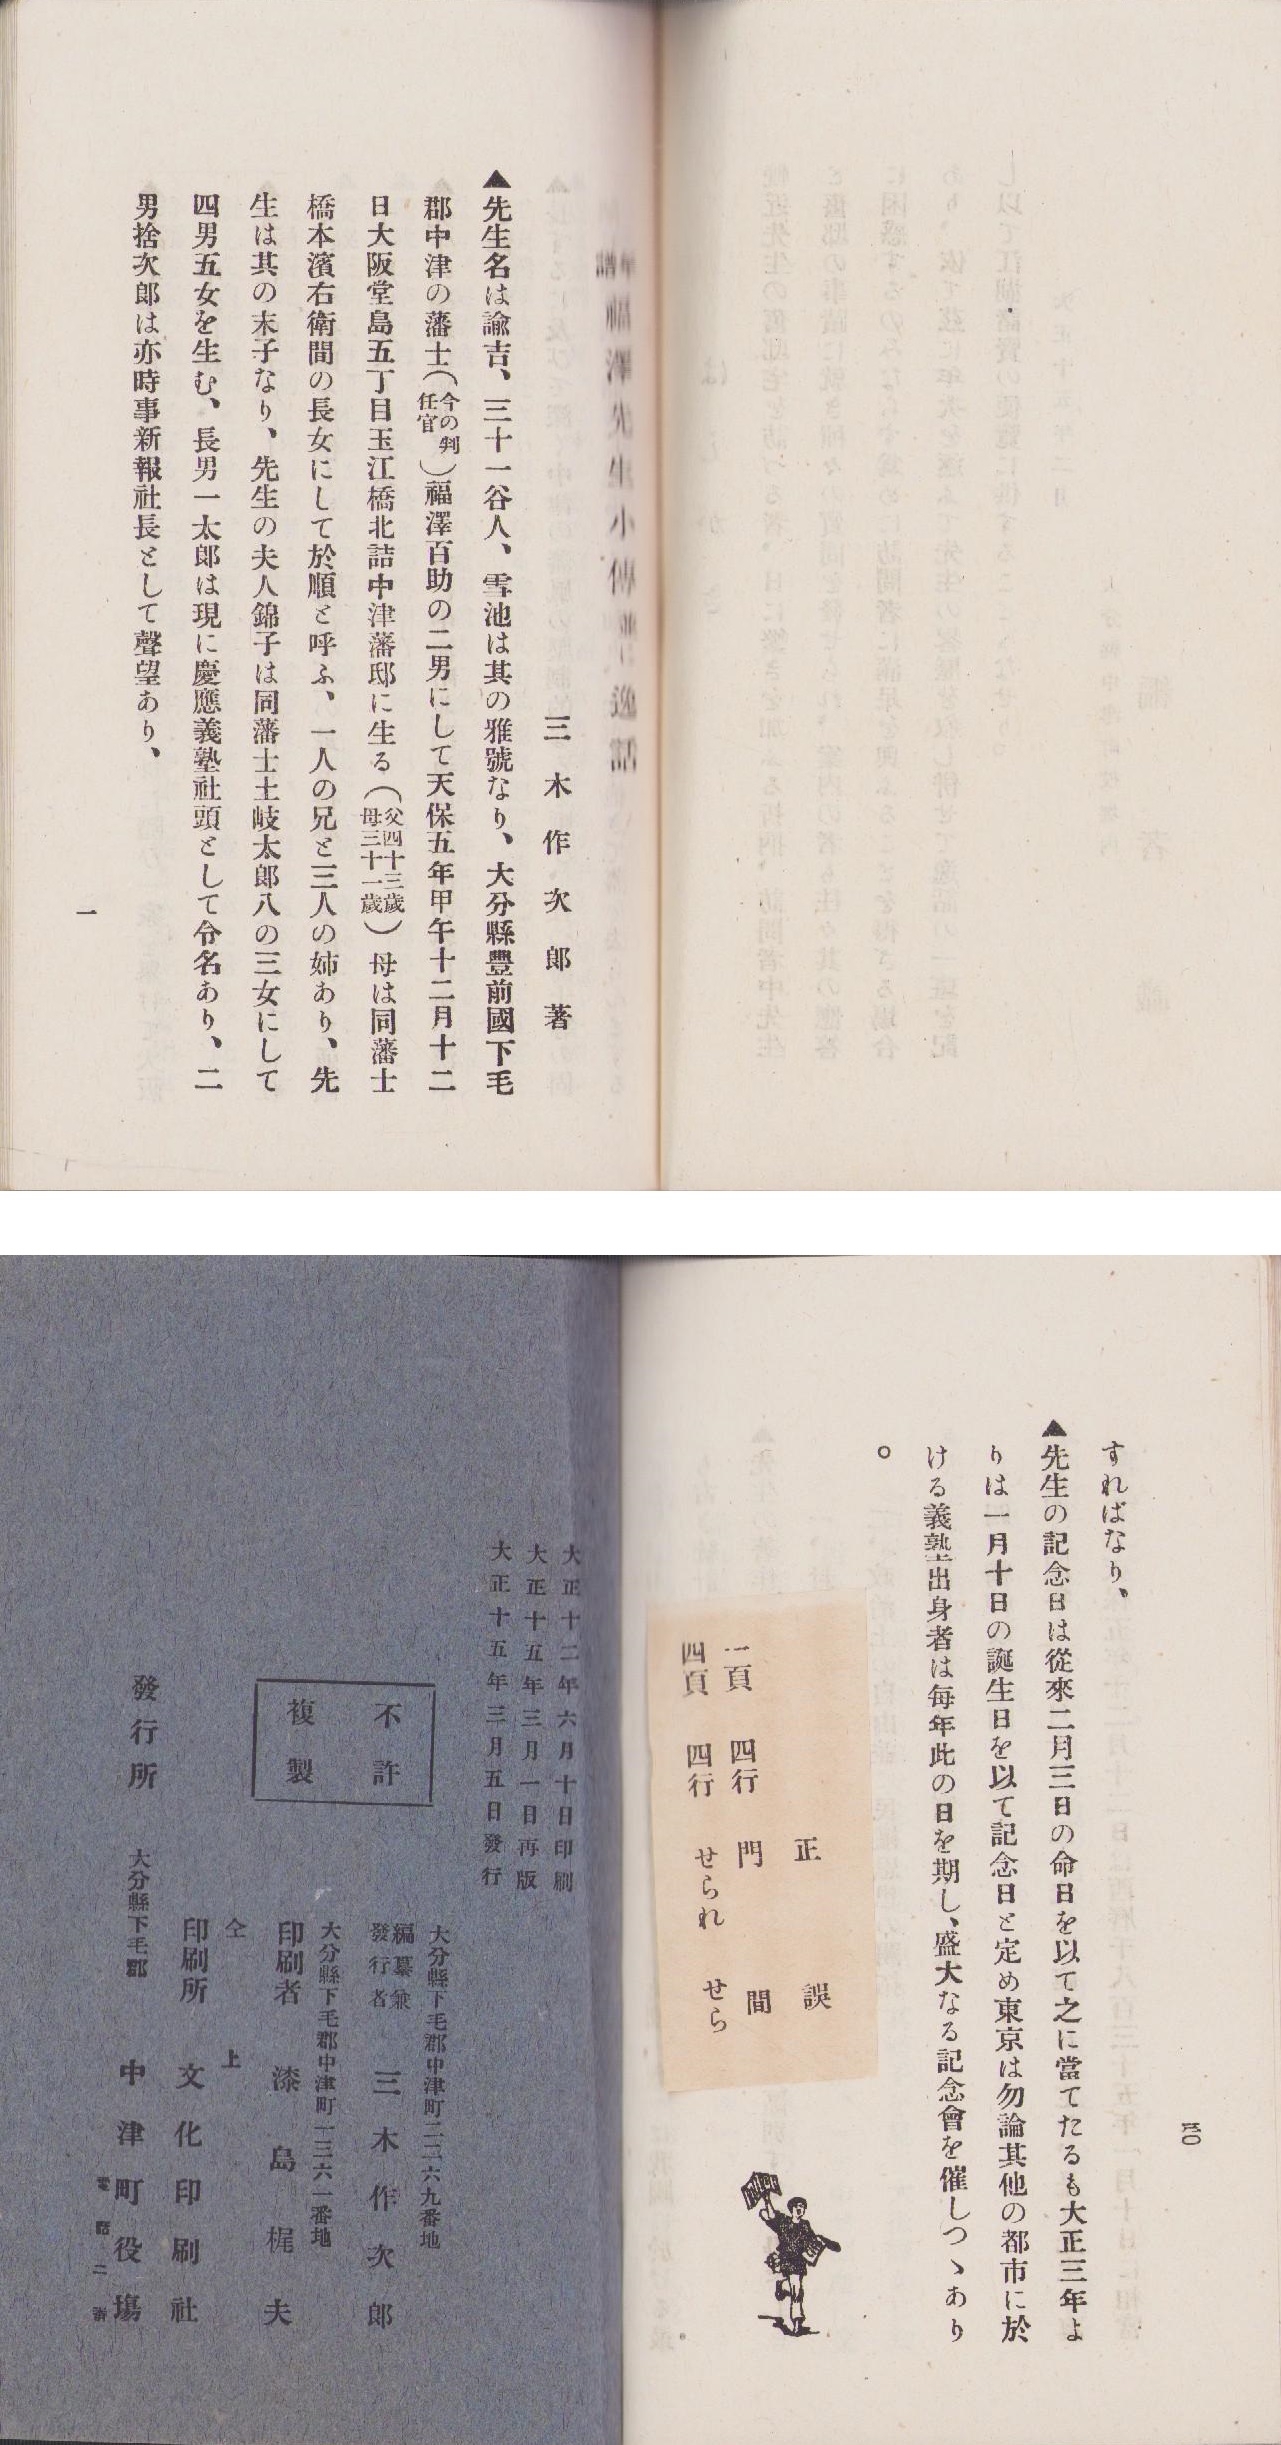 福澤先生小傳竝に逸話
三木作次郎著
▲先生名は諭吉、三十一谷人、雪池は其の雅號なり、大分縣豐前國下毛
郡中津の藩士（今の判任官）福澤百助の二男にして天保五年甲午十二月十二
日大阪堂島五丁目玉江橋北詰中津藩邸に生る（父四十三歲母三十一歲）母は同藩士
橋本濱右衛間の長女にして於順と呼ふ、一人の兄と三人の姉あり、先
生は其の末子なり、先生の夫人錦子は同藩士土岐太郎八の三女にして
四男五女を生む、長男一太郎は現に慶應義塾社頭として令名あり、二
男捨次郎は亦時事新報社長として聲望あり、
一
四〇
すればなり、
▲先生の記念日は從來二月三日の命日を以て之に當てたるも大正三年よ
りは一月十日の誕生日を以て記念日と定め東京は勿論其他の都市に於
ける義塾出身者は每年此の日を期し、盛大なる記念會を催しつゝあり
。
正 誤
一頁 四行 門 間
四頁 四行 せられ せら
大正十二年六月十日印刷
大正十五年三月一日再版
大正十五年三月五日發行
不許
複製
大分縣下毛郡中津町二二六九番地
編纂兼
發行者 三木作次郎
大分縣下毛郡中津町一三六一番地
印刷者 漆島梶夫
仝上
印刷所 文化印刷社
大分縣下毛郡
發行所 中津町役塲
電話二番